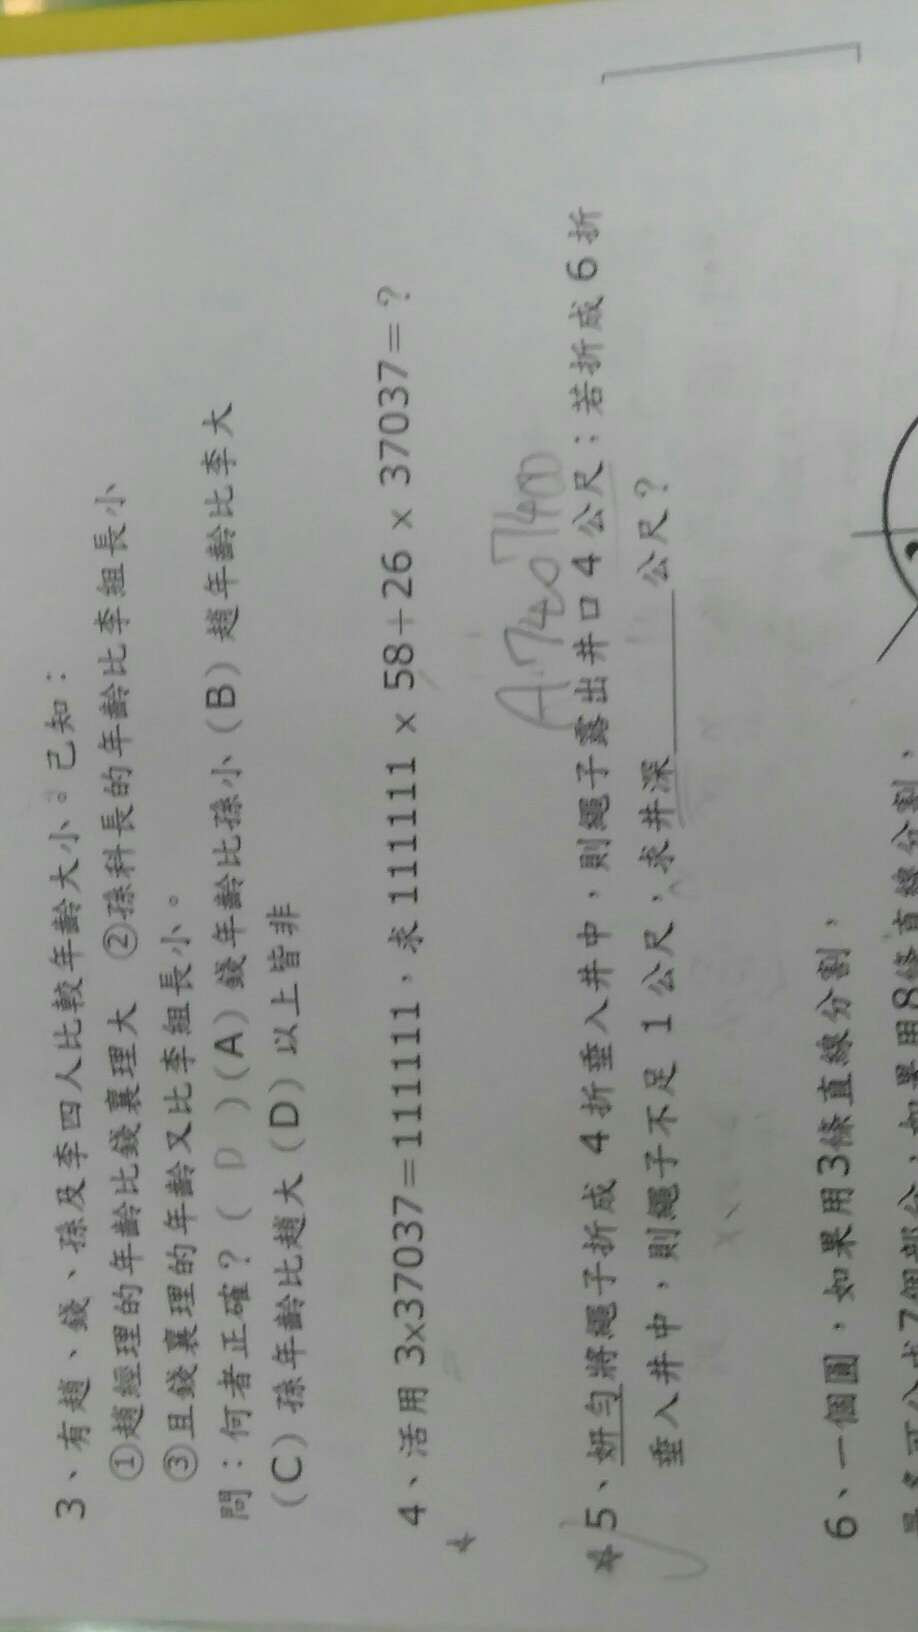 3、有趙、錢、孫及李四人比較年齡大小。已知：
①趙經理的年齡比錢襄理大 ②孫科長的年齡比李組長小
③且錢襄理的年齡又比李組長小。
問：何者正確？（ D ）（A）錢年齡比孫小（B）趙年齡比李大
（C）孫年齡比趙大（D）以上皆非
4、活用 3x37037=111111，求 111111 × 58+26 × 37037=？
A.7407400
5、妍勻將繩子折成 4 折垂入井中，則繩子露出井口 4 公尺；若折成 6 折
垂入井中，則繩子不足 1 公尺，求井深______公尺？
6、一個圓，如果用3條直線分割，
最多可分成7個部分，如果用8條直線分割，